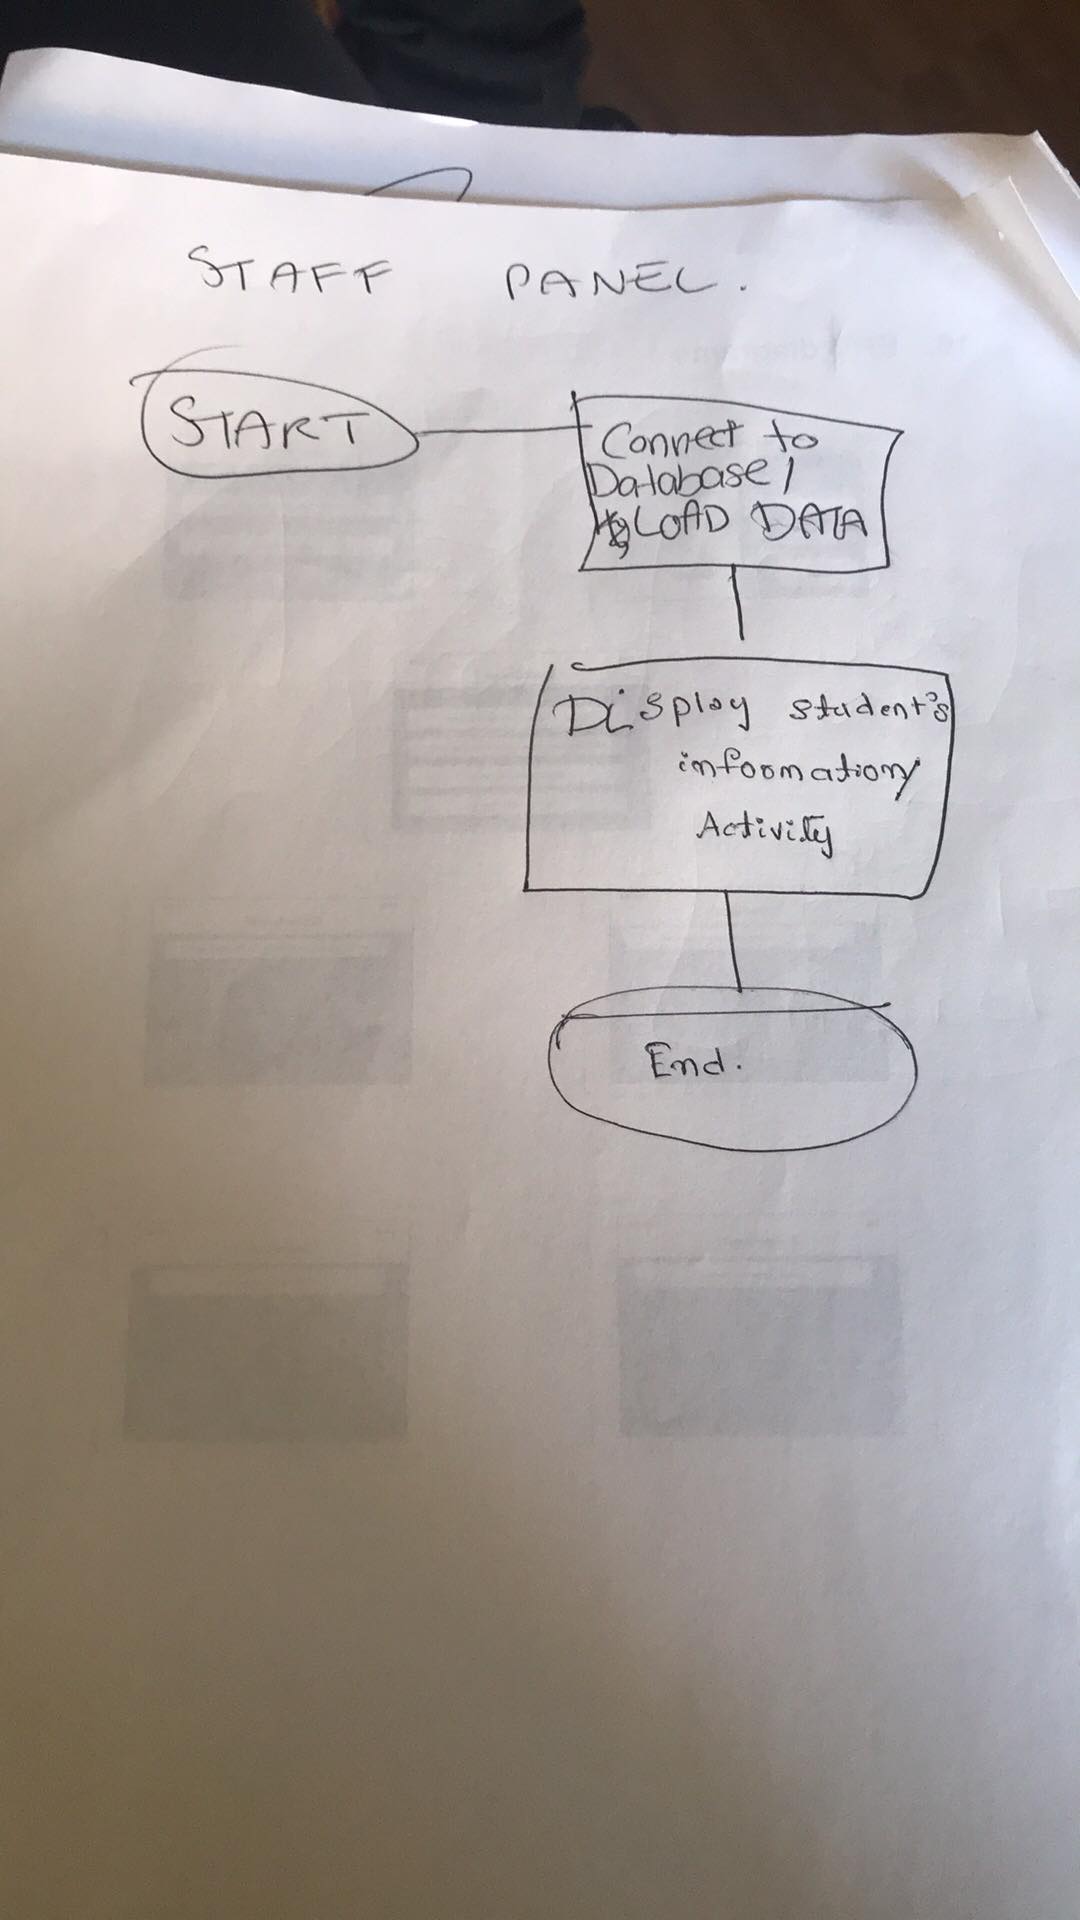 STAFF PANEL.
START
Connect to
Database/
LOAD DATA
Display student's
information/
Activity
End.